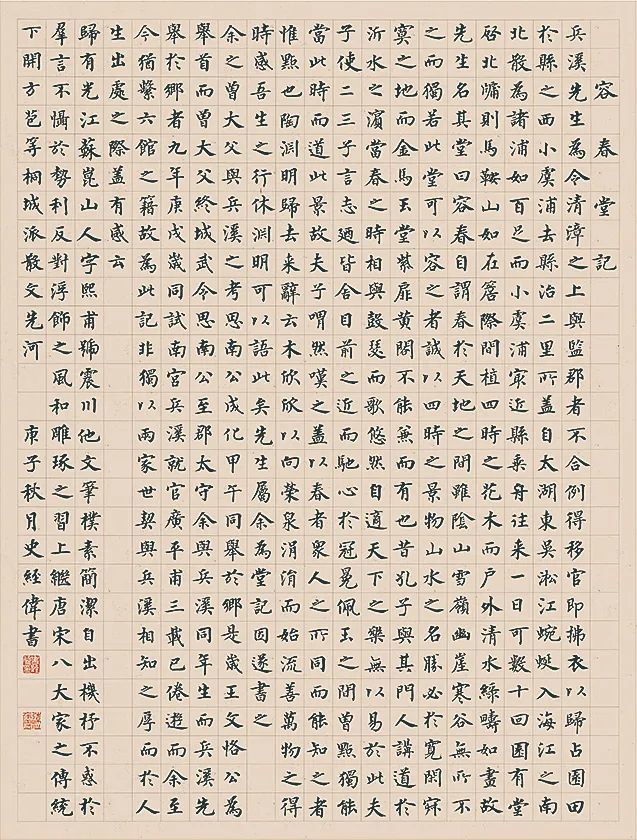 容春堂記
兵溪先生為令清漳之上與監郡者不合例得移官即拂衣以歸占園田
於縣之西小虞浦去縣治二里所蓋自太湖東吳淞江蜿蜒入海江之南
北散為諸浦如百足而小虞浦㝡近縣乘舟往来一日可數十回園有堂
啓北牖則馬鞍山如在簷際間植四時之花木而戶外清水綠疇如畫故
先生名其堂曰容春自謂春於天地之間雖陰山雪嶺幽崖寒谷無所不
之而獨若此堂可以容之者誠以四時之景物山水之名勝必於寬閒寂
寞之地而金馬玉堂紫扉黃閣不能兼而有也昔孔子與其門人講道於
沂水之濱當春之時相與鼓瑟而歌悠然自適天下之樂無以易於此夫
子使二三子言志廼皆舍目前之近而馳心於冠冕佩玉之間曾點獨能
當此時而道此景故夫子喟然嘆之蓋以春者眾人之所同而能知之者
惟點也陶淵明歸去来辭云木欣欣以向榮泉涓涓而始流善萬物之得
時感吾生之行休淵明可以語此矣先生屬余為堂記因遂書之
余之曾大父與兵溪之考思南公成化甲午同舉於鄉是歲王文恪公為
舉首而曾大父終城武令思南公至郡太守余與兵溪同年生而兵溪先
舉於鄉者九年庚戌歲同試南宮兵溪就官廣平甫三載已倦遊而余至
今猶縶六館之籍故為此記非獨以兩家世契與兵溪相知之厚而於人
生出處之際蓋有感云
歸有光江蘇崑山人字熙甫號震川他文筆樸素簡潔自出機杼不惑於
羣言不懾於勢利反對浮飾之風和雕琢之習上繼唐宋八大家之傳統
下開方苞等桐城派散文先河 庚子秋月史經偉書